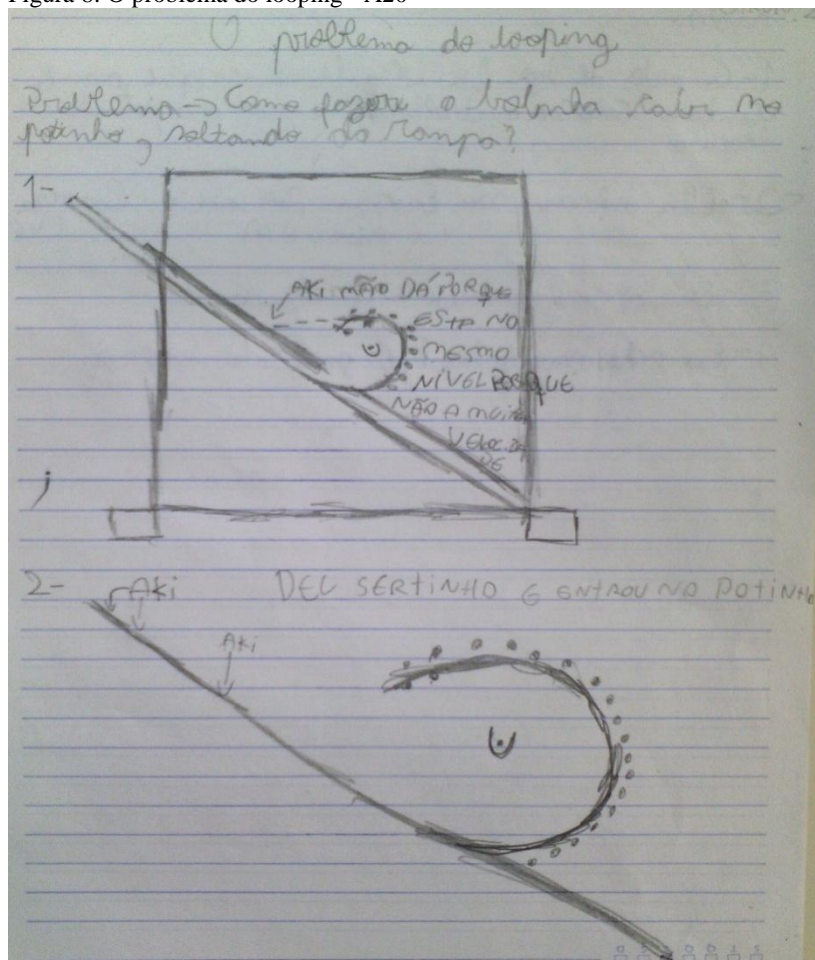 O problema do looping
Problema → Como fazer a bolinha cair no
potinho, soltando da rampa?
1-
AKi NÃO DÁ PORQUE
ESTA NO
MESMO
NÍVEL PORQUE
NÃO A MUITA
VELOCIDA
DE
2-
AKi
DEU SERTINHO E ENTROU NO POTINHO
AKi